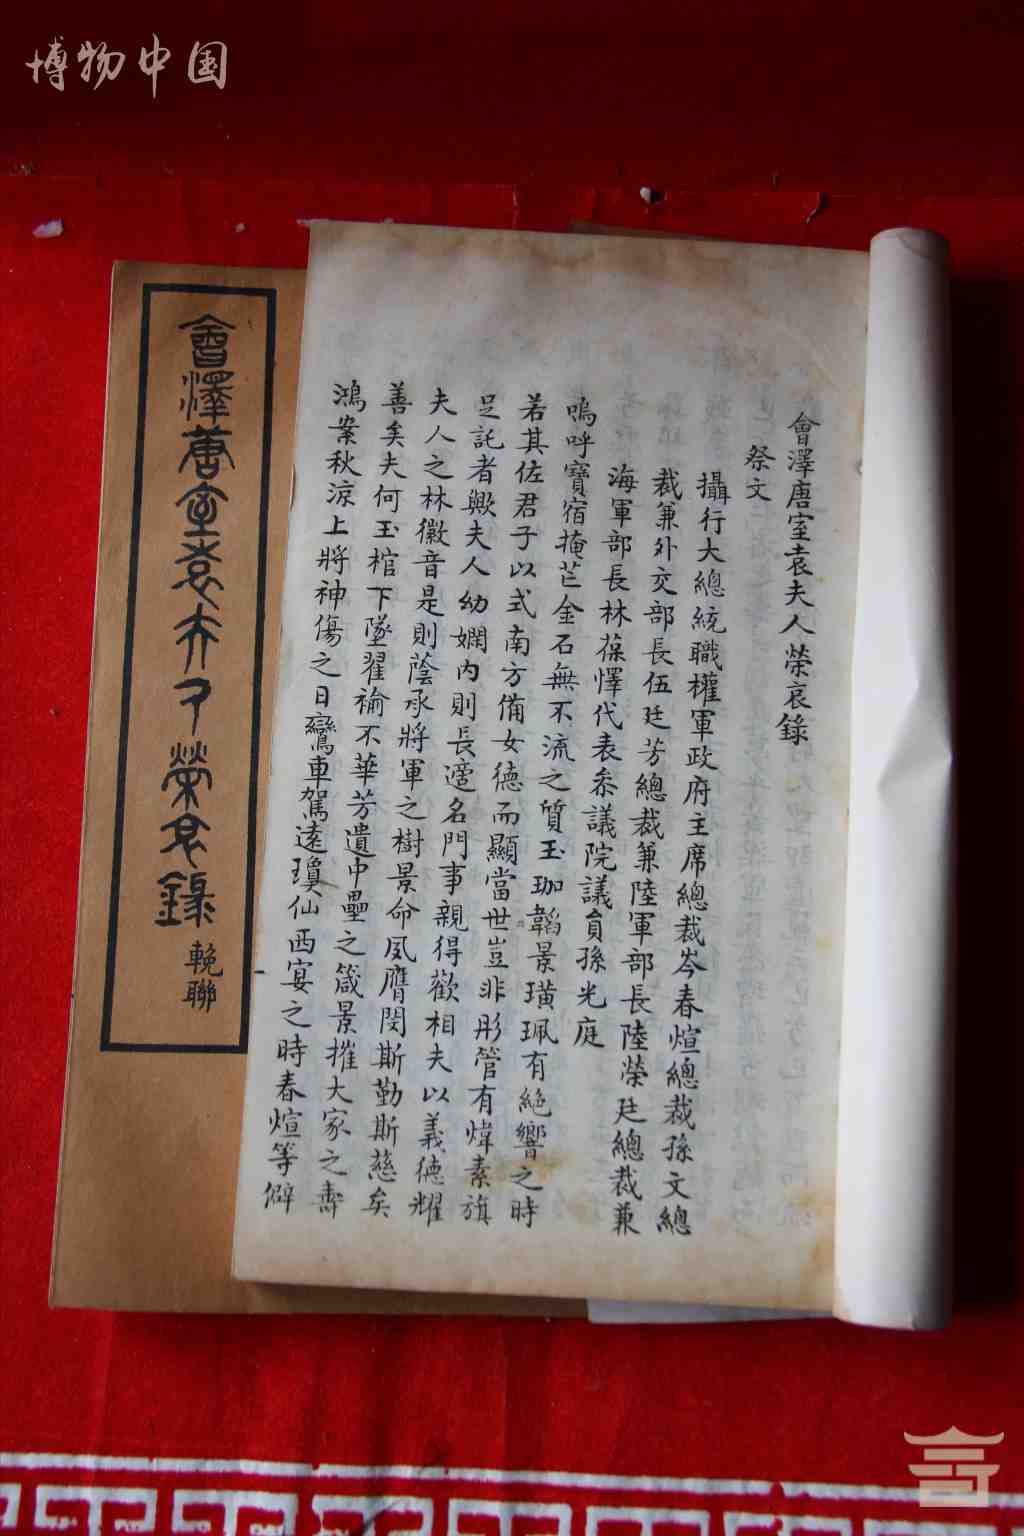 博物中国
會澤唐室袁夫人榮哀錄
祭文
攝行大總統職權軍政府主席總裁岑春煊總裁孫文總
裁兼外交部長伍廷芳總裁兼陸軍部長陸榮廷總裁兼
海軍部長林葆懌代表叅議院議員孫光庭
嗚呼寶宿掩芒金石無不流之質玉珈韜景璜珮有絕響之時
若其佐君子以式南方備女德而顯當世豈非彤管有煒素旗
足託者歟夫人幼嫻內則長適名門事親得歡相夫以義德耀
夫人之林徽音是則蔭承將軍之樹景命夙膺閔斯勤斯慈矣
善矣夫何玉棺下墜翟褕不華芳遺中壘之箴景摧大家之壽
鴻案秋涼上將神傷之日鸞車駕遠瓊仙西宴之時春煊等僻
會澤唐室袁夫人榮哀錄
輓聯